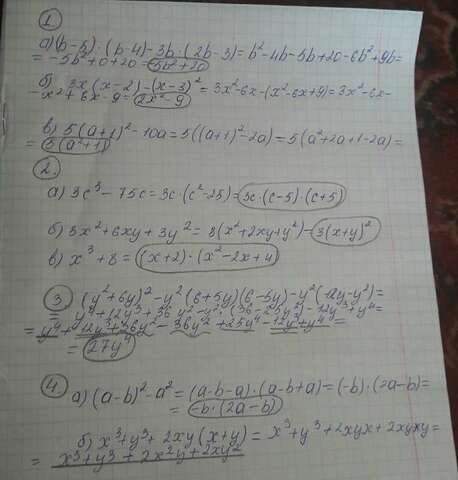 1.
а) (b-5)·(b-4)-3b·(2b-3)=b²-4b-5b+20-6b²+9b=
=-5b²+0+20=-5b²+20
б) 3x(x-2)-(x-3)²=3x²-6x-(x²-6x+9)=3x²-6x-
-x²+6x-9=2x²-9
в) 5(a+1)²-10a=5((a+1)²-2a)=5(a²+2a+1-2a)=
=5(a²+1)
2.
а) 3c³-75c=3c·(c²-25)=3c·(c-5)·(c+5)
б) 3x²+6xy+3y²=3(x²+2xy+y²)=3(x+y)²
в) x³+8=(x+2)·(x²-2x+4)
3 (y²+6y)²-y²(6+5y)(6-5y)-y²(12y-y²)=
=y⁴+12y³+36y²-y²·(36-25y²)-12y³+y⁴=
=y⁴+12y³+36y²-36y²+25y⁴-12y³+y⁴=
=27y⁴
4 а) (a-b)²-a²=(a-b-a)·(a-b+a)=(-b)·(2a-b)=
=-b·(2a-b)
б) x³+y³+2xy(x+y)=x³+y³+2xyx+2xyxy=
=x³+y³+2x²y+2xy²